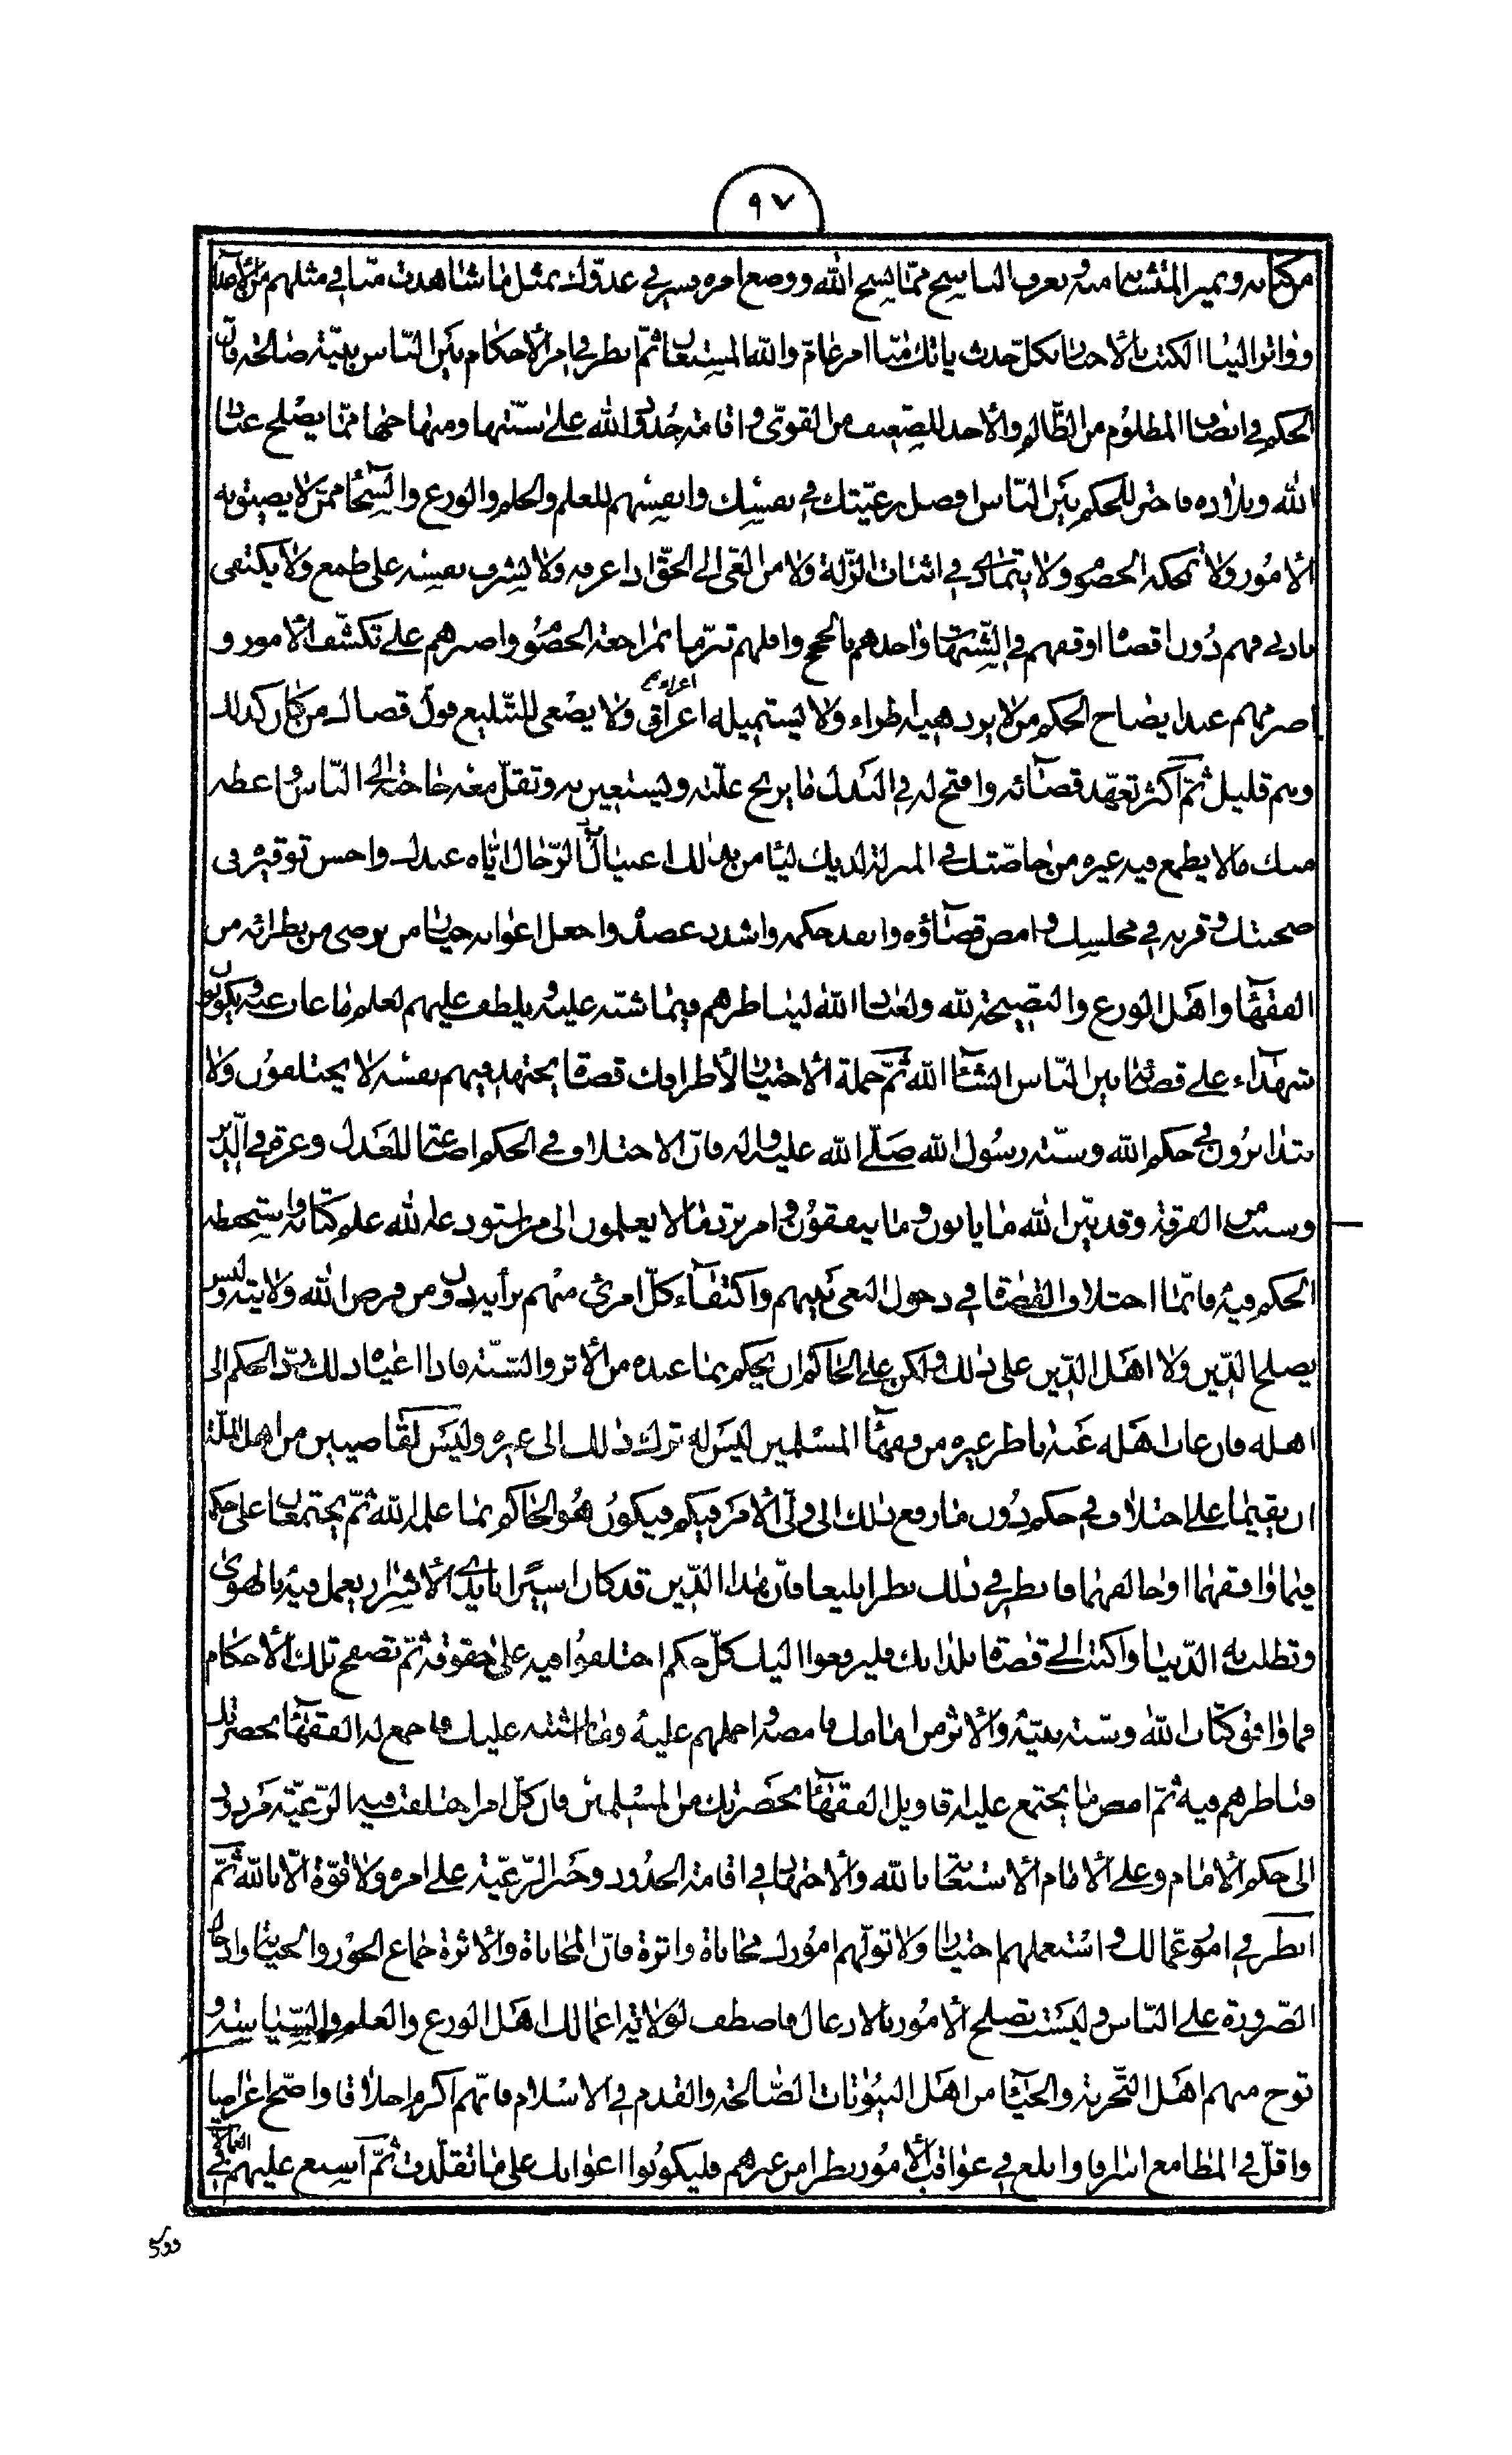 ٩٧
من كتابه و تميز المتشابه منه تعرف الناسخ مما نسخ الله و وضع امره بسر في عدوك بمثل ما شاهدت منا في مثلهم من الأعداء
و واتر الينا الكتب بالأخبار بكل حدث ياتك منا امر عام و الله المستعان ثم انظر في امر الأحكام بين الناس بنية صالحة فان
الحكم في انصاف المظلوم من الظالم و الأخذ للضعيف من القوي و اقامة حدود الله على سنتها و منهاجها مما يصلح عباد
الله و بلاده فاختر للحكم بين الناس افضل رعيتك في نفسك و انفسهم للعلم و الحلم و الورع و السخاء ممن لا يضيق به
الأمور و لا تمحكه الخصوم و لا يتمادى في اثبات الزلة و لا من الفئ الى الحق اذا عرفه و لا يشرف نفسه على طمع و لا يكتفى
بادنى فهم دون اقصاه اوقفهم في الشبهات و اخذهم بالحجج و اقلهم تبرما بمراجعة الخصوم و اصبرهم على تكشف الأمور و
اصرمهم عند ايضاح الحكم من لا يزدهيه اطراء و لا يستميله اغراق و لا يصغى للتبليغ فول قضاك من كان كذلك
و هم قليل ثم اكثر تعهد قضائه و افتح له في البذل ما يزيح علته و يستعين به و تقل معه حاجته الى الناس و اعطه
منك ما لا يطمع فيه غيره من خاصتك في المنزلة لديك ليأمن بذلك اغتيال الرجال اياه عندك و احسن توقيره في
صحبتك و قربه في مجلسك و امض قضاؤه و انفذ حكمه و اشدد عضده و اجعل اعوانه خيار من ترضى من نظرائه من
الفقهاء و اهل الورع و النصيحة لله و لعباد الله ليناظرهم فيما شبه عليه و يلطف عليهم لعلم ما غاب عنه و يكونون
شهداء على قضائه بين الناس انشاء الله ثم حملة الأخبار لأطرافك قضاة يجتهد فيهم نفسه لا يختلفون و لا
يتدابرون في حكم الله و سنة رسول الله صلى الله عليه و اله فان الاختلاف في الحكم اضاعة للعدل و غرة في الدين
و سبب من الفرقة و قد بين الله ما ياتون و ما ينفقون و امر برد ما لا يعلمون الى من استودعه الله علم كتابه و استحفظه
الحكم فيه فانما اختلاف القضاة في دخول البغى بينهم و اكتفاء كل امرئ منهم برأيه دون من فرض الله ولايته و ليس
يصلح الدين و لا اهل الدين على ذلك و لكن على الحاكم ان يحكم بما عنده من الأثر و السنة فاذا اعياه ذلك رد الحكم الى
اهله فان غاب اهله عنه ناظر غيره من فقهاء المسلمين ليس له ترك ذلك الى غيره و ليس لقاضيين من اهل الملة
ان يقيما على اختلاف في حكم دون ما رفع ذلك الى ولى الأمر فيكم فيكون هو الحاكم بما علمه الله ثم يجتمعان على حكمه
فيما وافقهما او خالفهما فانظر في ذلك نظرا بليغا فان هذا الدين قد كان اسيرا بايدى الأشرار يعمل فيه بالهوى
و تطلب به الدنيا و اكتب الى قضاة بلدانك فليرفعوا اليك كل حكم اختلفوا فيه على حقوقه ثم تصفح تلك الأحكام
فما وافق كتاب الله و سنة نبيه و الأثر من امامك فامضه و احملهم عليه و ما اشتبه عليك فاجمع له الفقهاء بحضرتك
فناظرهم فيه ثم امض ما يجتمع عليه اقاويل الفقهاء بحضرتك من المسلمين فان كل امر اختلف فيه الرعية مردود
الى حكم الأمام و على الأمام الأستعانة بالله و الأجتهاد في اقامة الحدود و جبر الرعية على امره و لا قوة الا بالله ثم
انظر في امور عمالك و استعملهم اختيارا و لا تولهم امورك محاباة و اثرة فان المحاباة و الأثرة جماع الجور و الخيانة و ادخال
الضرورة على الناس و ليست تصلح الأمور بالادغال فاصطف لولاية اعمالك اهل الورع و العلم و السياسة و
توخ منهم اهل التجربة و الحياء من اهل البيوتات الصالحة و القدم في الاسلام فانهم اكرم اخلاقا و اصح اعراضا
و اقل في المطامع اشرافا و ابلغ في عواقب الأمور نظرا من غيرهم فليكونوا اعوانك على ما تقلدت ثم اسبغ عليهم في العمالات